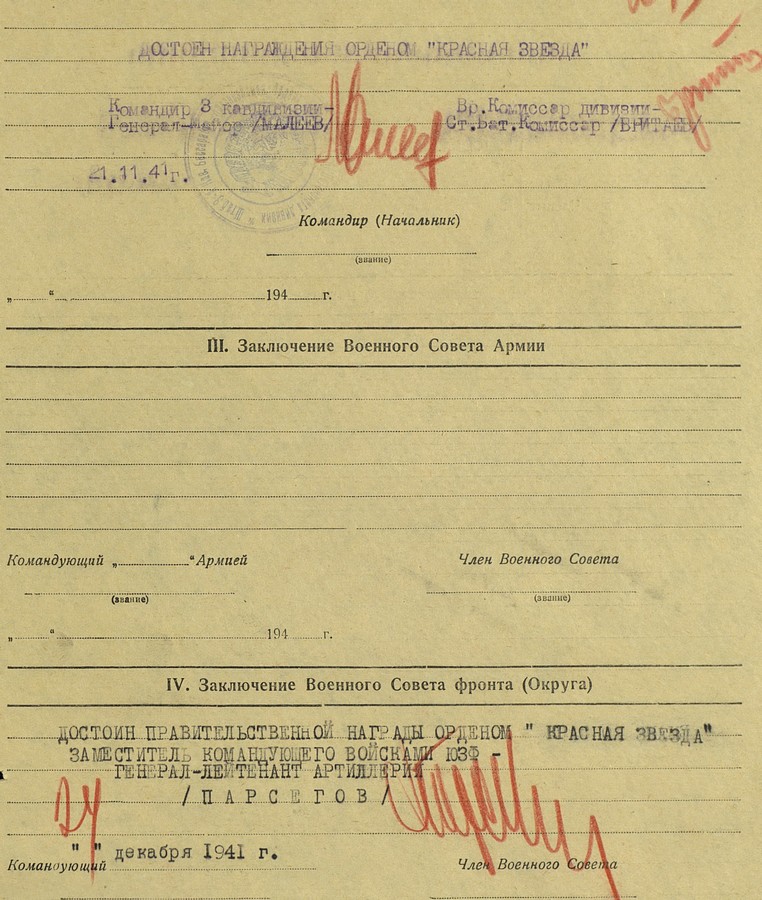 ДОСТОЕН НАГРАЖДЕНИЯ ОРДЕНОМ "КРАСНАЯ ЗВЕЗДА"
Командир 3 кавдивизии- Вр.Комиссар дивизии-
Генерал-майор /МАЛЕЕВ/ Ст.Бат.Комиссар /БРИТАЕВ/
21.11.41г.
Командир (Начальник)
(звание)
„ “ 194 г.
III. Заключение Военного Совета Армии
Командующий „ “Армией Член Военного Совета
(звание) (звание)
„ “ 194 г.
IV. Заключение Военного Совета фронта (Округа)
ДОСТОИН ПРАВИТЕЛЬСТВЕННОЙ НАГРАДЫ ОРДЕНОМ " КРАСНАЯ ЗВЕЗДА"
ЗАМЕСТИТЕЛЬ КОМАНДУЮЩЕГО ВОЙСКАМИ ЮЗФ -
ГЕНЕРАЛ-ЛЕЙТЕНАНТ АРТИЛЛЕРИИ
/ П А Р С Е Г О В /
24
" " декабря 1941 г.
Командующий Член Военного Совета